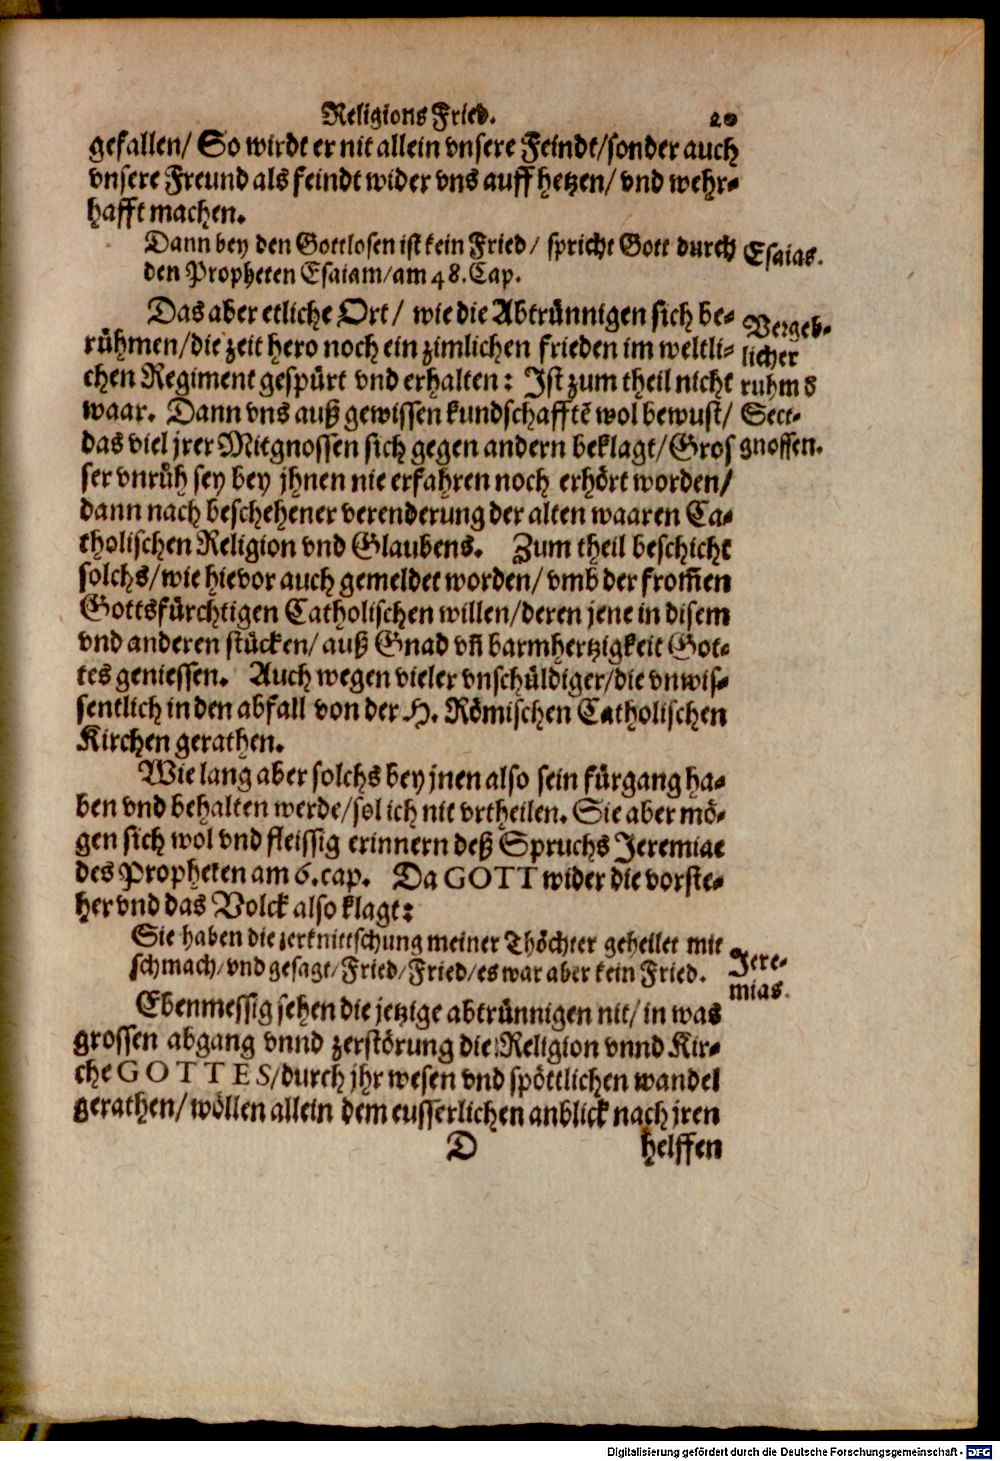 Religions Fried. 20
gefallen/ So wirdt er nit allein vnsere Feindt/sonder auch
vnsere Freund als feindt wider vns auff hetzen/ vnd wehr-
hafft machen.
Dann bey den Gottlosen ist kein Fried/ spricht Gott durch
den Propheten Esaiam/am 48.Cap.
Esaias.
Das aber etliche Ort/ wie die Abtrünnigen sich be-
rühmen/die zeit hero noch ein zimlichen frieden im weltli-
chen Regiment gespürt vnd erhalten: Ist zum theil nicht
waar. Dann vns auß gewissen kundschafftē wol bewust/
das viel jrer Mitgnossen sich gegen andern beklagt/Gros
ser vnrüh sey bey jhnen nie erfahren noch erhört worden/
dann nach beschehener verenderung der alten waaren Ca-
tholischen Religion vnd Glaubens. Zum theil beschicht
solchs/wie hievor auch gemeldet worden/ vmb der from̃en
Gottsfürchtigen Catholischen willen/deren jene in disem
vnd anderen stücken/ auß Gnad vñ barmhertzigkeit Got-
tes geniessen. Auch wegen vieler vnschüldiger/die vnwis-
sentlich in den abfall von der H. Römischen Catholischen
Kirchen gerathen.
Vergeb-
licher
ruhm 8
Sect-
gnossen.
Wie lang aber solchs bey jnen also sein fürgang ha-
ben vnd behalten werde/sol ich nit vrtheilen. Sie aber mö-
gen sich wol vnd fleissig erinnern deß Spruchs Jeremiae
des Propheten am 6.cap. Da GOTT wider die vorste-
her vnd das Volck also klagt:
Sie haben die zerknittschung meiner Thöchter geheilet mit
schmach/vnd gesagt/Fried/Fried/es war aber kein Fried.
Jere-
mias.
Ebenmessig sehen die jetzige abtrünnigen nit/ in was
grossen abgang vnnd zerstörung die Religion vnnd Kir-
che GOTTES/durch jhr wesen vnd spöttlichen wandel
gerathen/ wöllen allein dem eusserlichen anblick nach jren
D helffen
Digitalisierung gefördert durch die Deutsche Forschungsgemeinschaft - DFG